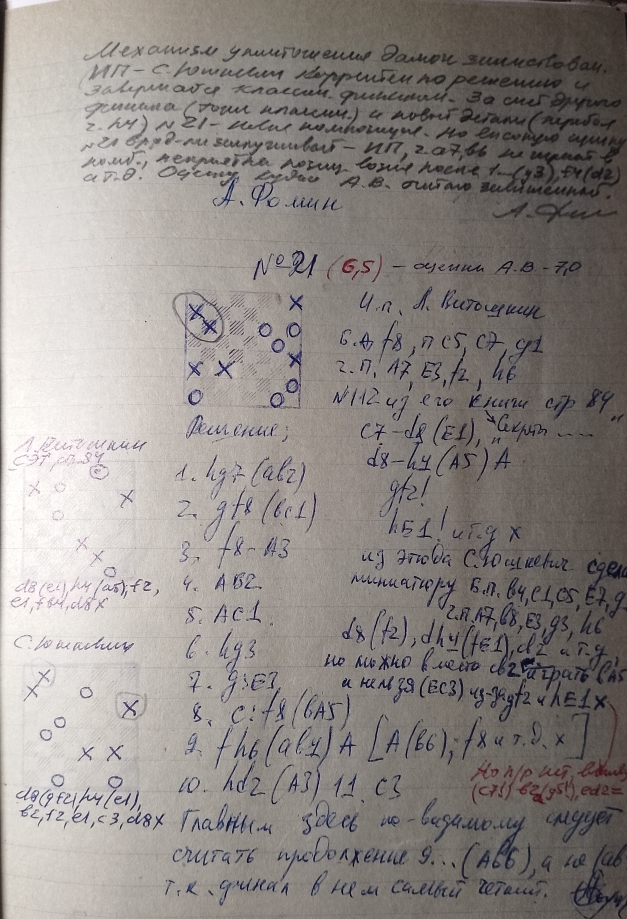 Механизм уничтожения дамок заимствован.
ИП - С. Юшкевич корректен по решению и
завершался классич. финалом. За счёт другого
финала (тоже классич.) и новой детали (перебой
ч. h4) №21 - новая композиция. Но высокую оценку
№21 вряд ли заслуживает - ИП, ч. a7, b6 не играют в
комб., неприятна позиц. возня после 1...(g3), f4(d2)
и т.д. Оценку судьи А.В. считаю завышенной.
А. Фомин
№21 (6,5) - оценка А.В. - 7,0
И.п. Л. Витошкин
Б.Д. f8, п c5, c7, g1
ч.п. A7, E3, f2, h6
N112 из его книги стр 84
"Секреты ....."
Решение;
c7-d8 (E1),
d8-h4 (A5) A
gf2!
hE1! и т.д x
1. hg7 (ab2)
2. gf8 (bc1)
3. f8-A3
4. AB2
5. AC1
6. hg3
7. g3E3
8. c:f8 (bA5)
9. fh6 (ab4) A [A(b6); f8 и т.д. x]
10. hd2 (A3) 11. c3
Л. Витошкин
СЭТ, стр. 84
d8(e1), h4(a5), f2,
e1, f64, d8x
из этюда С. Юшкевич сдела
миниатюру Б.п. B4, C1, C5, E7, g
ч.п. A7, b8, E3, g3, h6
d8(f2), dh4(fE1), b2 и т.д,
но можно вместо cb2 играть bA5
а нельзя (EC3) из-за gf2 и hE1x
С. Юшкевич
d8(gf2), h4(e1),
b2, f2, e1, c3, d8x
Но п/р нет, в виду
(c73) b2(g51), ed2=
Главным здесь по-видимому следует
считать продолжение 9... (Ab6), а не (ab
т.к. финал в нем самый четкий.